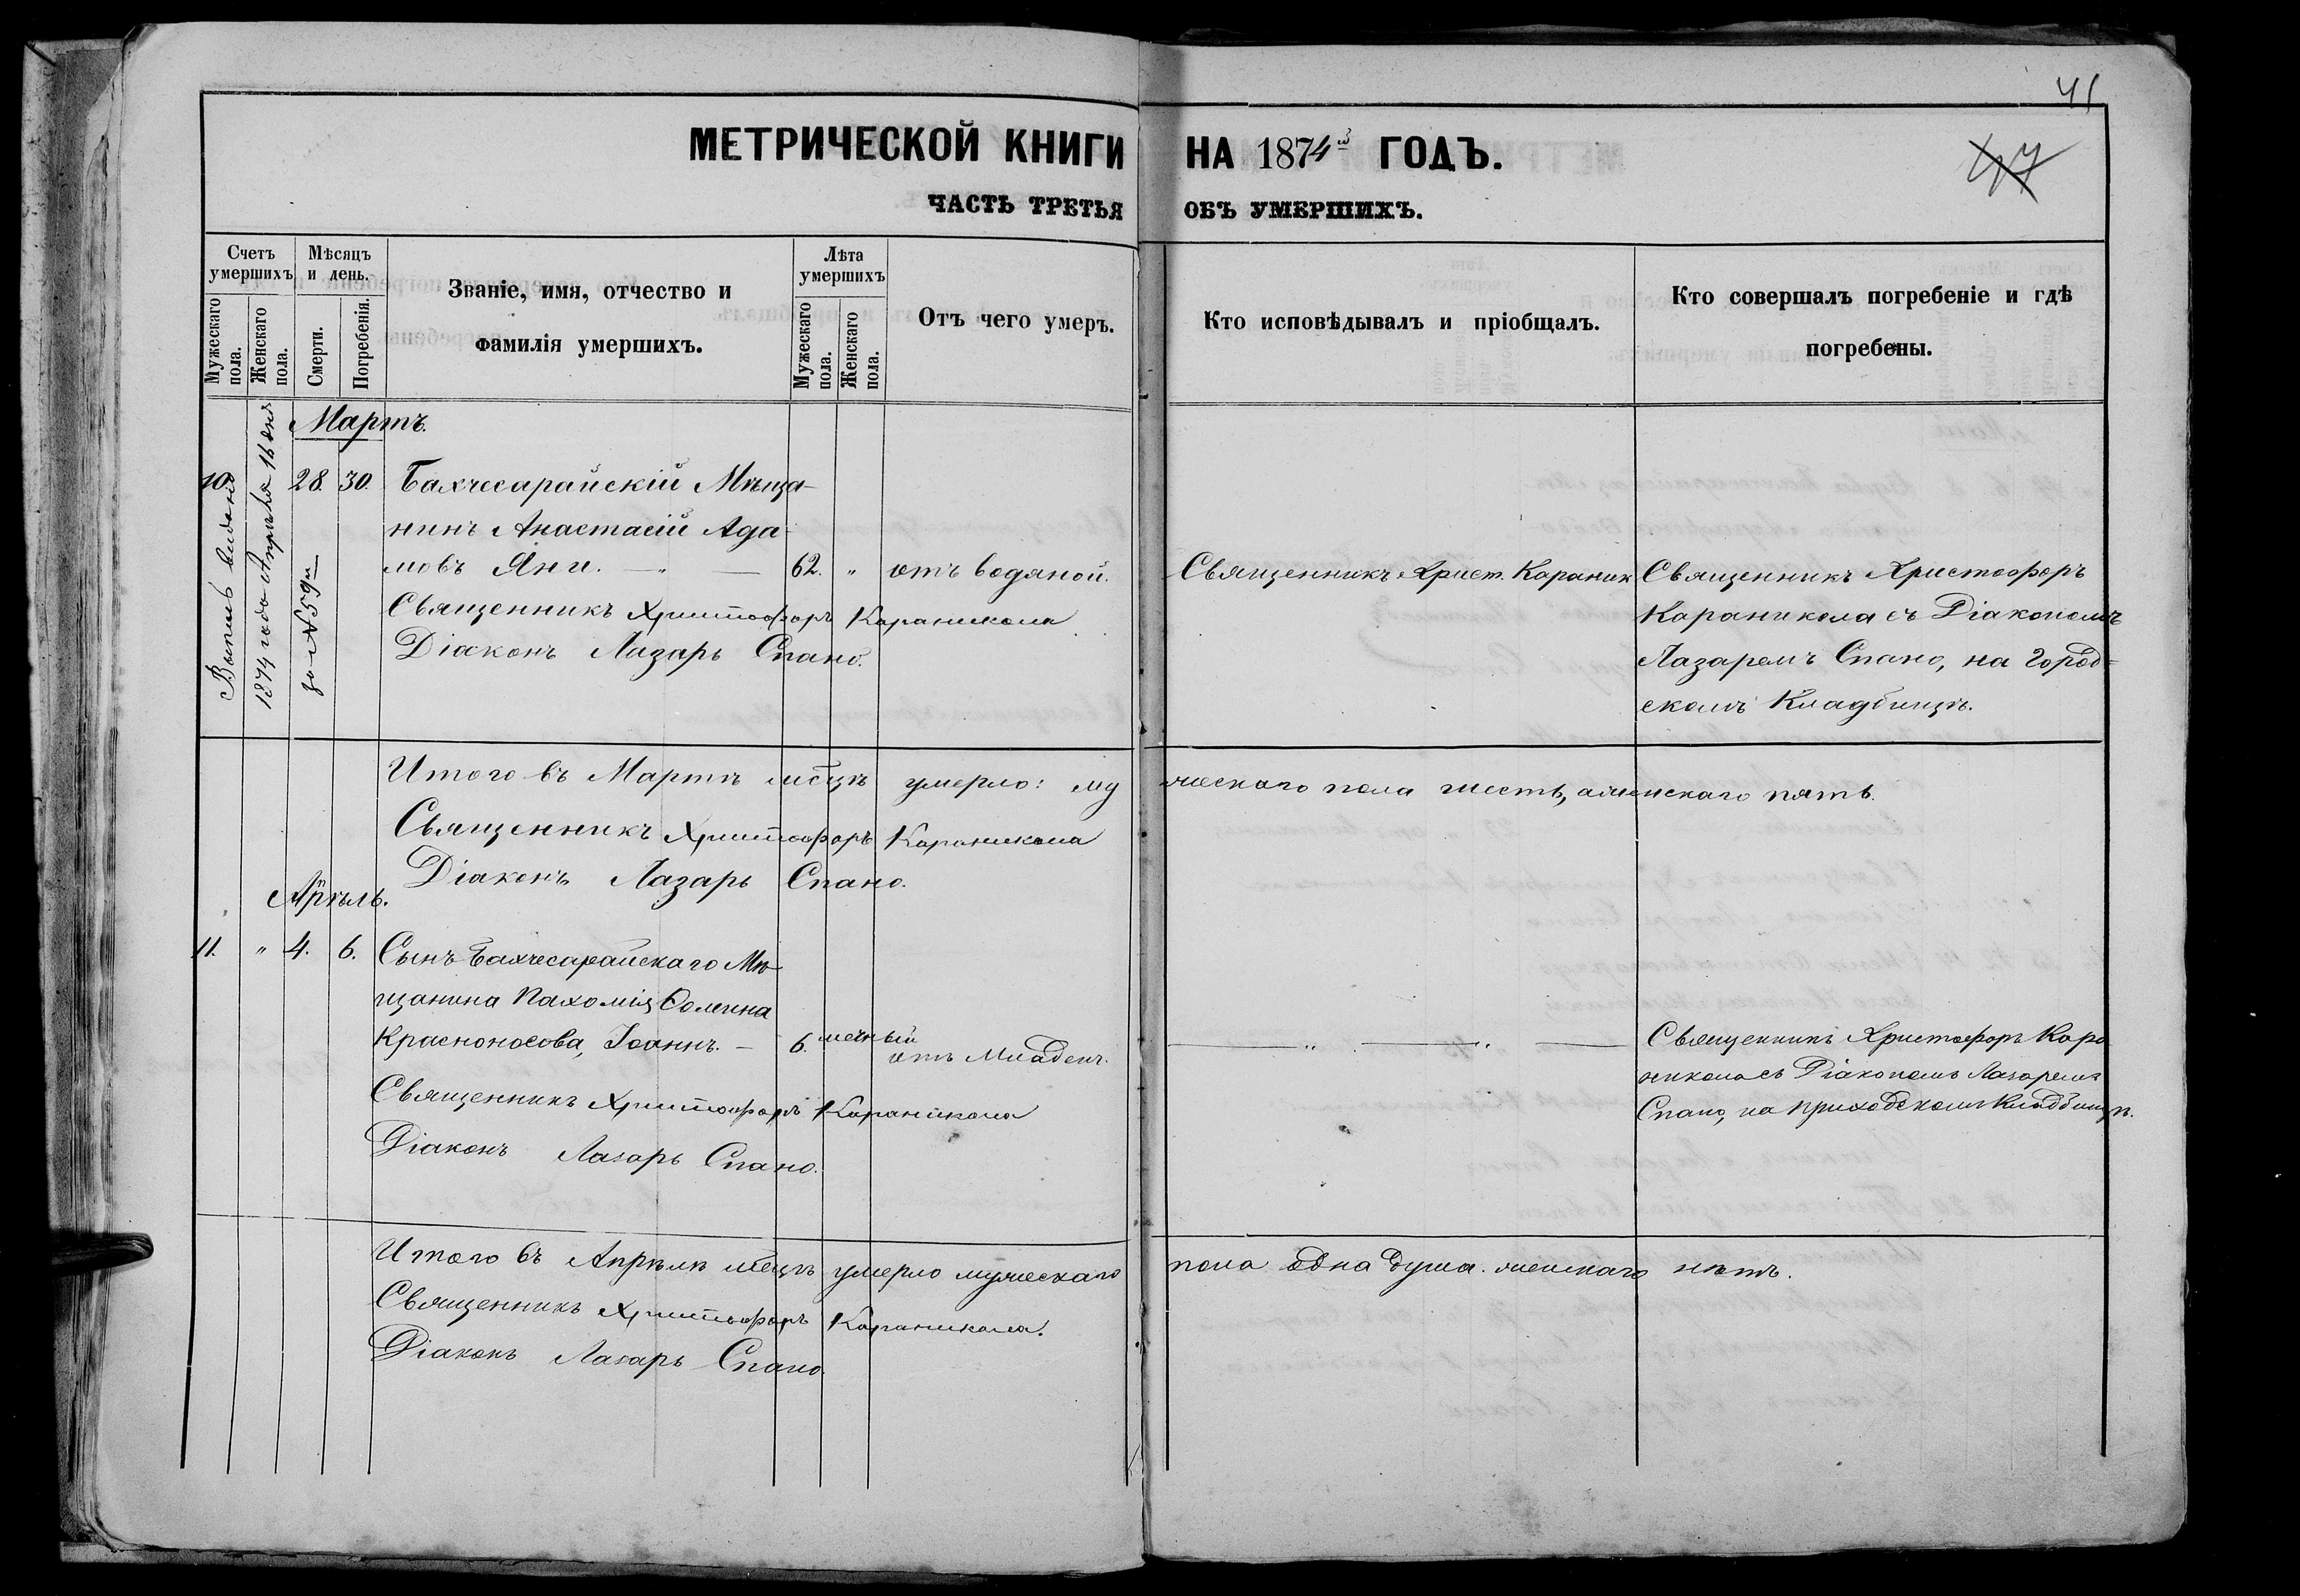 41
47
МЕТРИЧЕСКОЙ КНИГИ НА 1874 ГОДЪ.
ЧАСТЬ ТРЕТЬЯ ОБЪ УМЕРШИХЪ.
Счетъ умершихъ.
Мужескаго пола.
Женскаго пола.
Мѣсяцъ и день.
Смерти.
Погребенія.
Званіе, имя, отчество и
фамилія умершихъ.
Лѣта умершихъ
Мужескаго пола.
Женскаго пола.
Отъ чего умеръ.
Кто исповѣдывалъ и пріобщалъ.
Кто совершалъ погребеніе и гдѣ
погребены.
Мартъ.
10. 28. 30. Бахчесарайскій Мѣща-
нинъ Анастасій Ада-
мовъ Яни. — „ — 62. „ отъ водяной. Священникъ Христ. Караник
Священникъ Христофоръ Караникола
Діаконъ Лазарь Спано.
Священникъ Христофоръ
Караникола съ Діакономъ
Лазаремъ Спано, на Город=
скомъ Кладбищѣ.
Выпись выдана
1874 года Апрѣля 16 дня
за № 59м
Итого въ Мартѣ мсцѣ умерло: му жескаго пола шесть, а женскаго пять.
Священникъ Христофоръ Караникола
Діаконъ Лазарь Спано.
Апрѣль.
11. „ 4. 6. Сынъ Бахчесарайскаго Мѣ-
щанина Пахомія
Красноносова, Іоаннъ. — 6. мечный отъ Младен. — „ — „ —
Священникъ Христофоръ Караникола
Діаконъ Лазарь Спано.
Священникъ Христофоръ Кара
никола съ Діакономъ Лазаремъ
Спано, на приходскомъ Кладбищѣ.
Итого въ Апрѣлѣ мсцѣ умерло мужескаго пола одна душа. женскаго нѣтъ.
Священникъ Христофоръ Караникола.
Діаконъ Лазарь Спано.